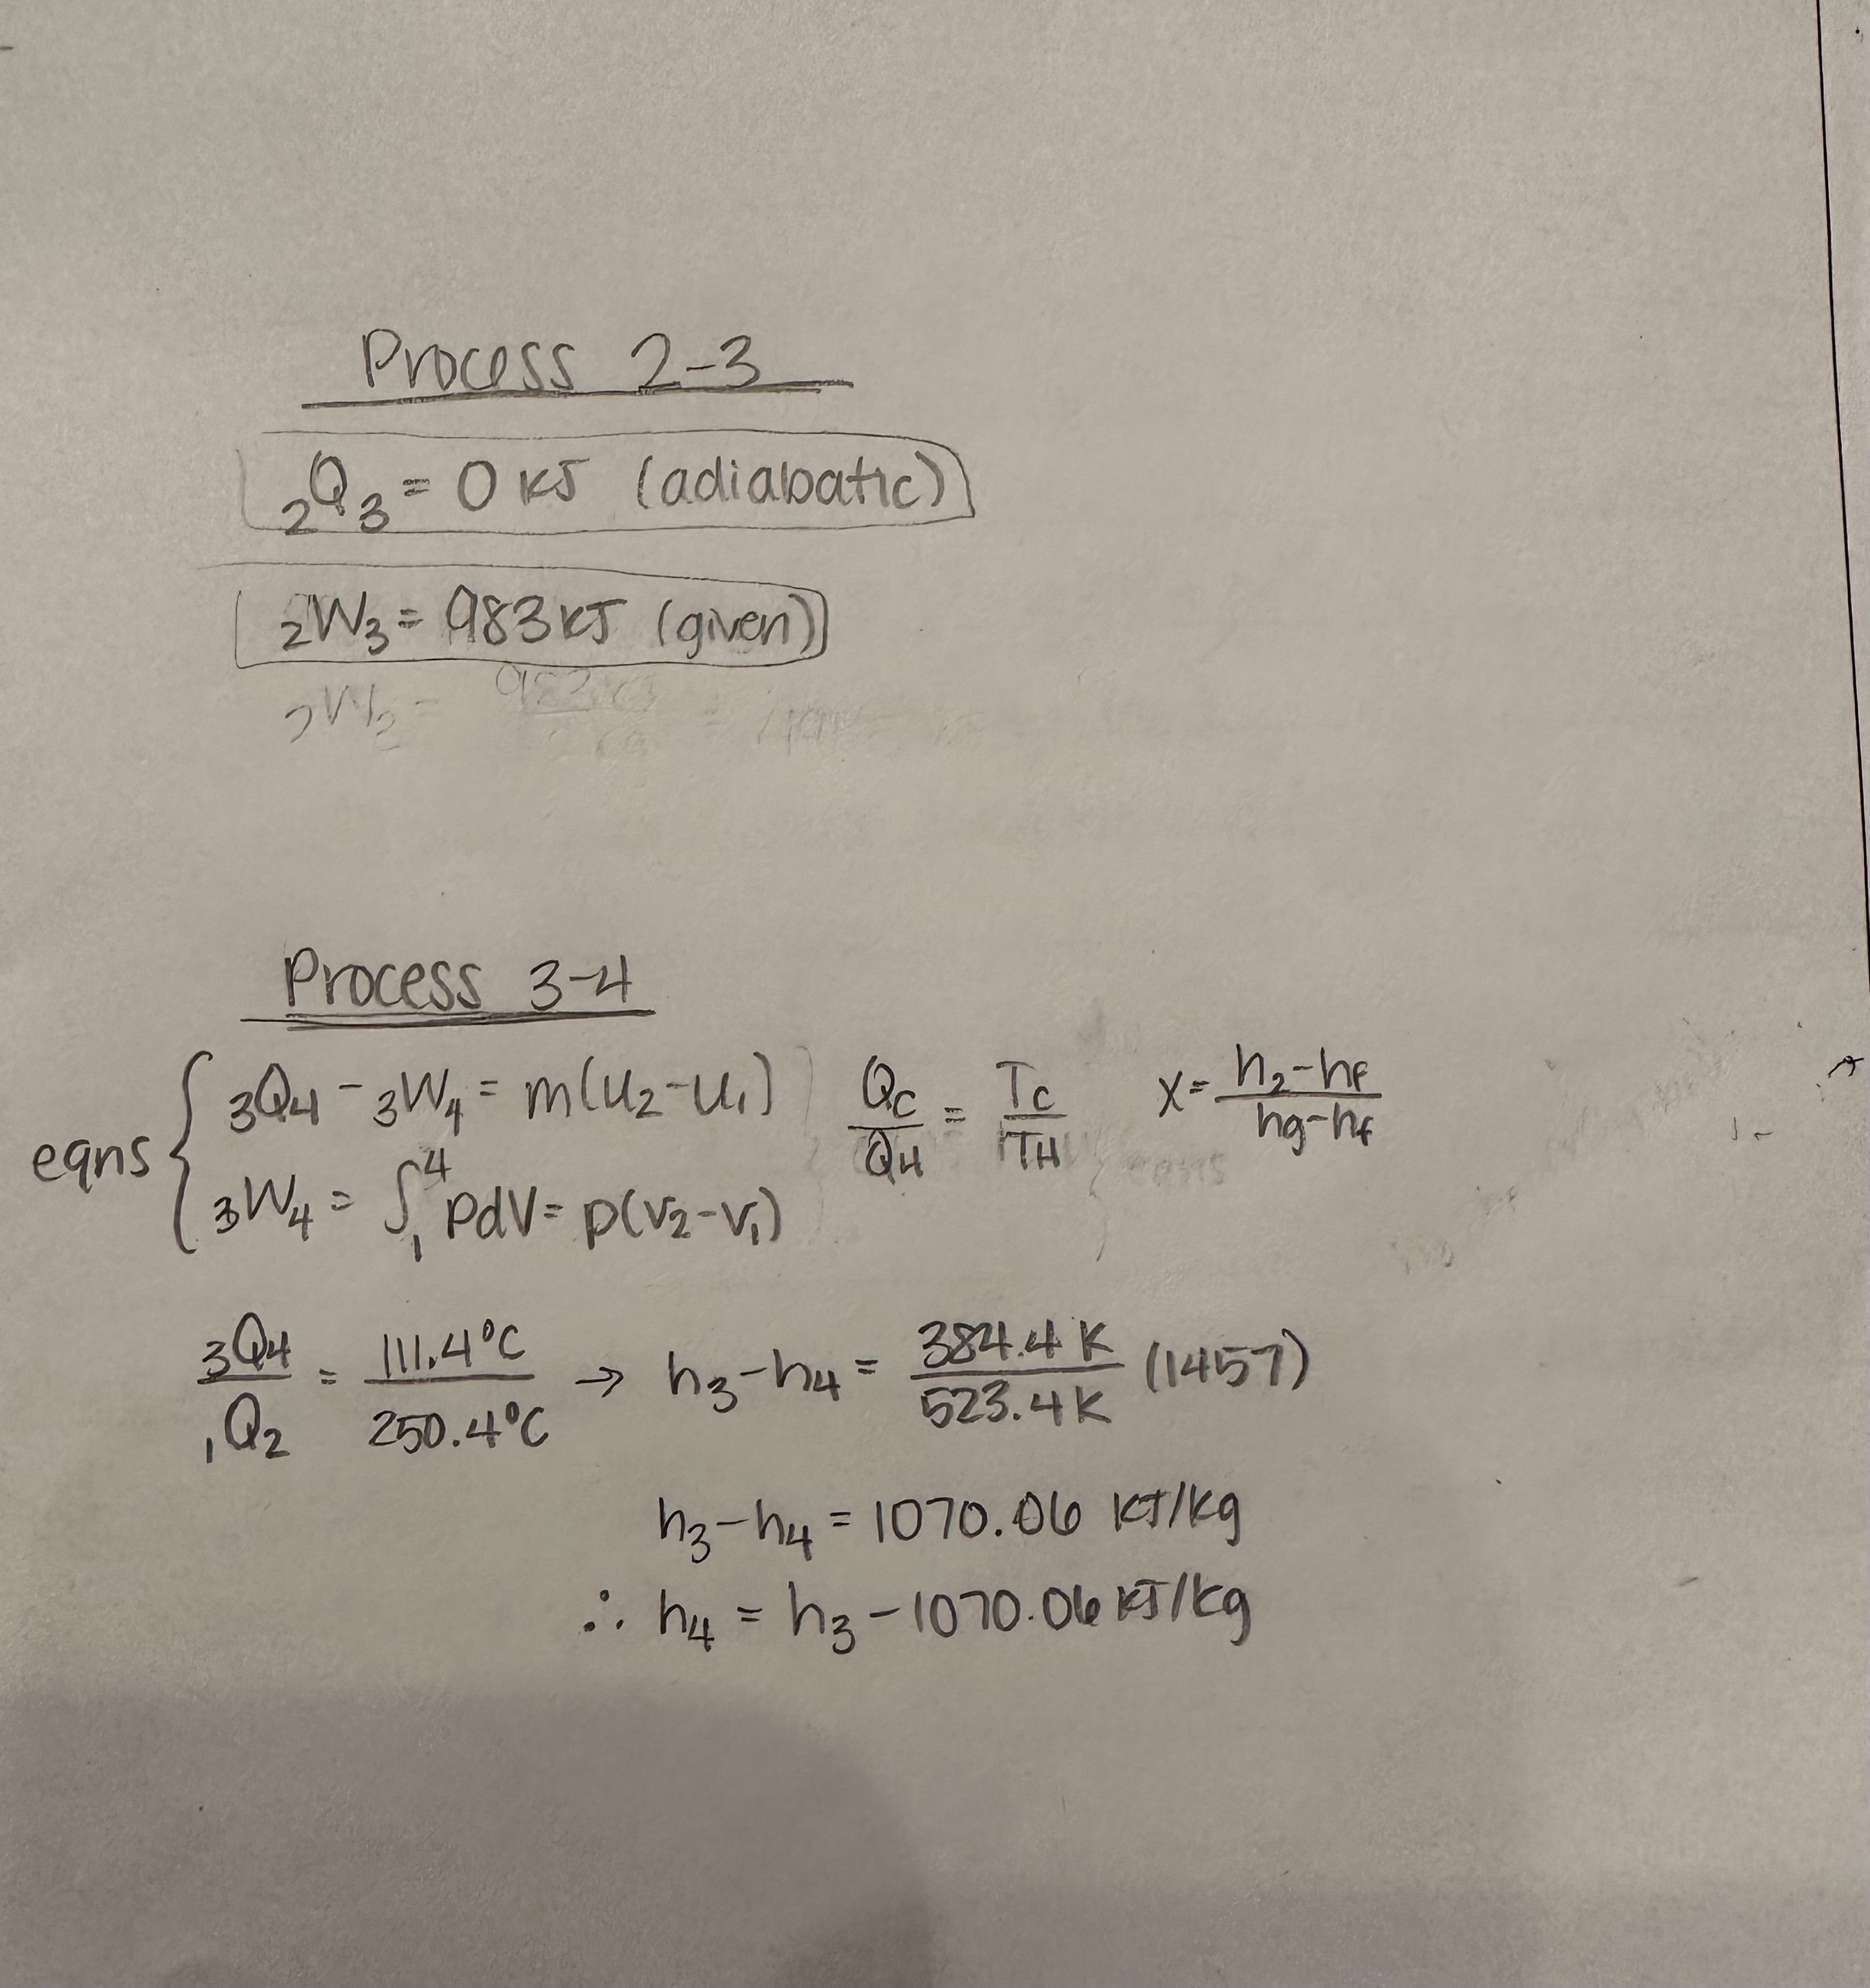 Process 2-3
₂Q₃ = 0 kJ (adiabatic)
₂W₃ = 983 kJ (given)
Process 3-4
eqns { ₃Q₄ - ₃W₄ = m(u₂-u₁) Qc/QH = Tc/TH x = (h₂-hf)/(hg-hf)
₃W₄ = ∫₁⁴ pdV = p(v₂-v₁)
₃Q₄/₁Q₂ = 111.4°C/250.4°C → h₃-h₄ = 384.4 K/523.4 K (1457)
h₃-h₄ = 1070.06 kJ/kg
∴ h₄ = h₃ - 1070.06 kJ/kg